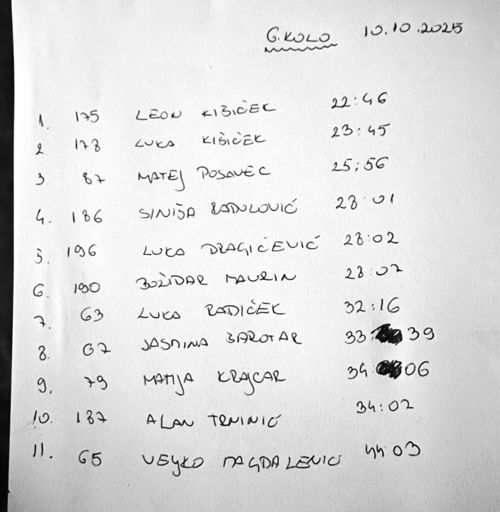 6. KOLO 10.10.2025
1. 175 LEON KIŠIČEK 22:46
2 178 LUKA KIŠIČEK 23:45
3 87 MATEJ POSAVEC 25:56
4. 186 SINIŠA RADULOVIĆ 28:01
5. 196 LUKA DRAGIČEVIĆ 28:02
6. 190 BOŽIDAR MAURIN 28:07
7. 63 LUKA RADIČEK 32:16
8. 67 JASMINA BAROTAR 33:39
9. 79 MATIJA KRAJCAR 34:06
10. 187 ALAN TRNINIĆ 34:02
11. 65 VELJKO MAGDALENIĆ 44:03